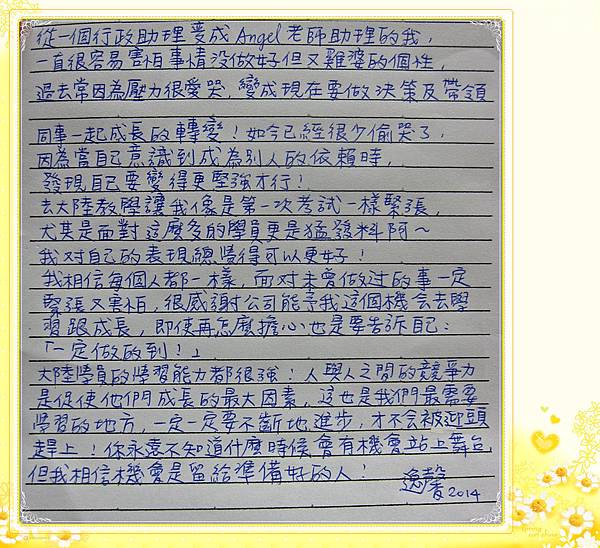 從一個行政助理變成Angel老師助理的我，
一直很容易害怕事情没做好但又雞婆的個性，
過去常因為壓力很愛哭，變成現在要做決策及帶領
同事一起成長的轉變！如今已經很少偷哭了，
因為當自己意識到成為別人的依賴時，
發現自己要變得更堅強才行！
去大陸教學讓我像是第一次考試一樣緊張，
尤其是面對這麼多的學員更是猛發料阿～
我對自己的表現總覺得可以更好！
我相信每個人都一樣，面对未曾做过的事一定
緊張又害怕，很感謝公司能予我這個機会去學
習跟成長，即使再怎麼擔心也是要告訴自己：
「一定做的到！」
大陸學員的學習能力都很強！人與人之間的競爭力
是促使他們成長的最大因素，這也是我們最需要
學習的地方，一定一定要不斷地進步，才不会被迎頭
趕上！你永遠不知道什麼時候會有機會站上舞台，
但我相信機會是留給準備好的人！
逸馨 2014